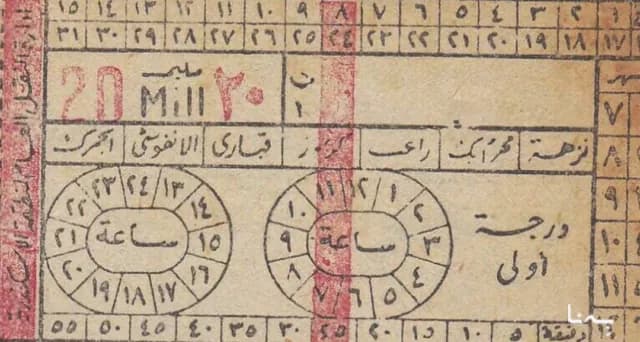 ١ ٢ ٣ ٤ ٥ ٦ ٧ ٨ ٩ ١٠ ١١ ١٢ ١٣ ١٤ ١٥
١٧ ١٨ ١٩ ٢٠ ٢١ ٢٢ ٢٣ ٢٤ ٢٥ ٢٦ ٢٧ ٢٨ ٢٩ ٣٠ ٣١
ن
١
مليم
٢٠ Mill 20
نزهة محرم بك راغب كرموز قبارى الانفوشى الجمرك
درجة
أولى
ساعة
١ ٢ ٣ ٤ ٥ ٦ ٧ ٨ ٩ ١٠ ١١ ١٢
ساعة
١٣ ١٤ ١٥ ١٦ ١٧ ١٨ ١٩ ٢٠ ٢١ ٢٢ ٢٣ ٢٤
دقيقة ٥ ١٠ ١٥ ٢٠ ٢٥ ٣٠ ٣٥ ٤٠ ٤٥ ٥٠ ٥٥
٧
٨
٩
١٠
١١
إدارة النقل العام لمنطقة الاسكندرية